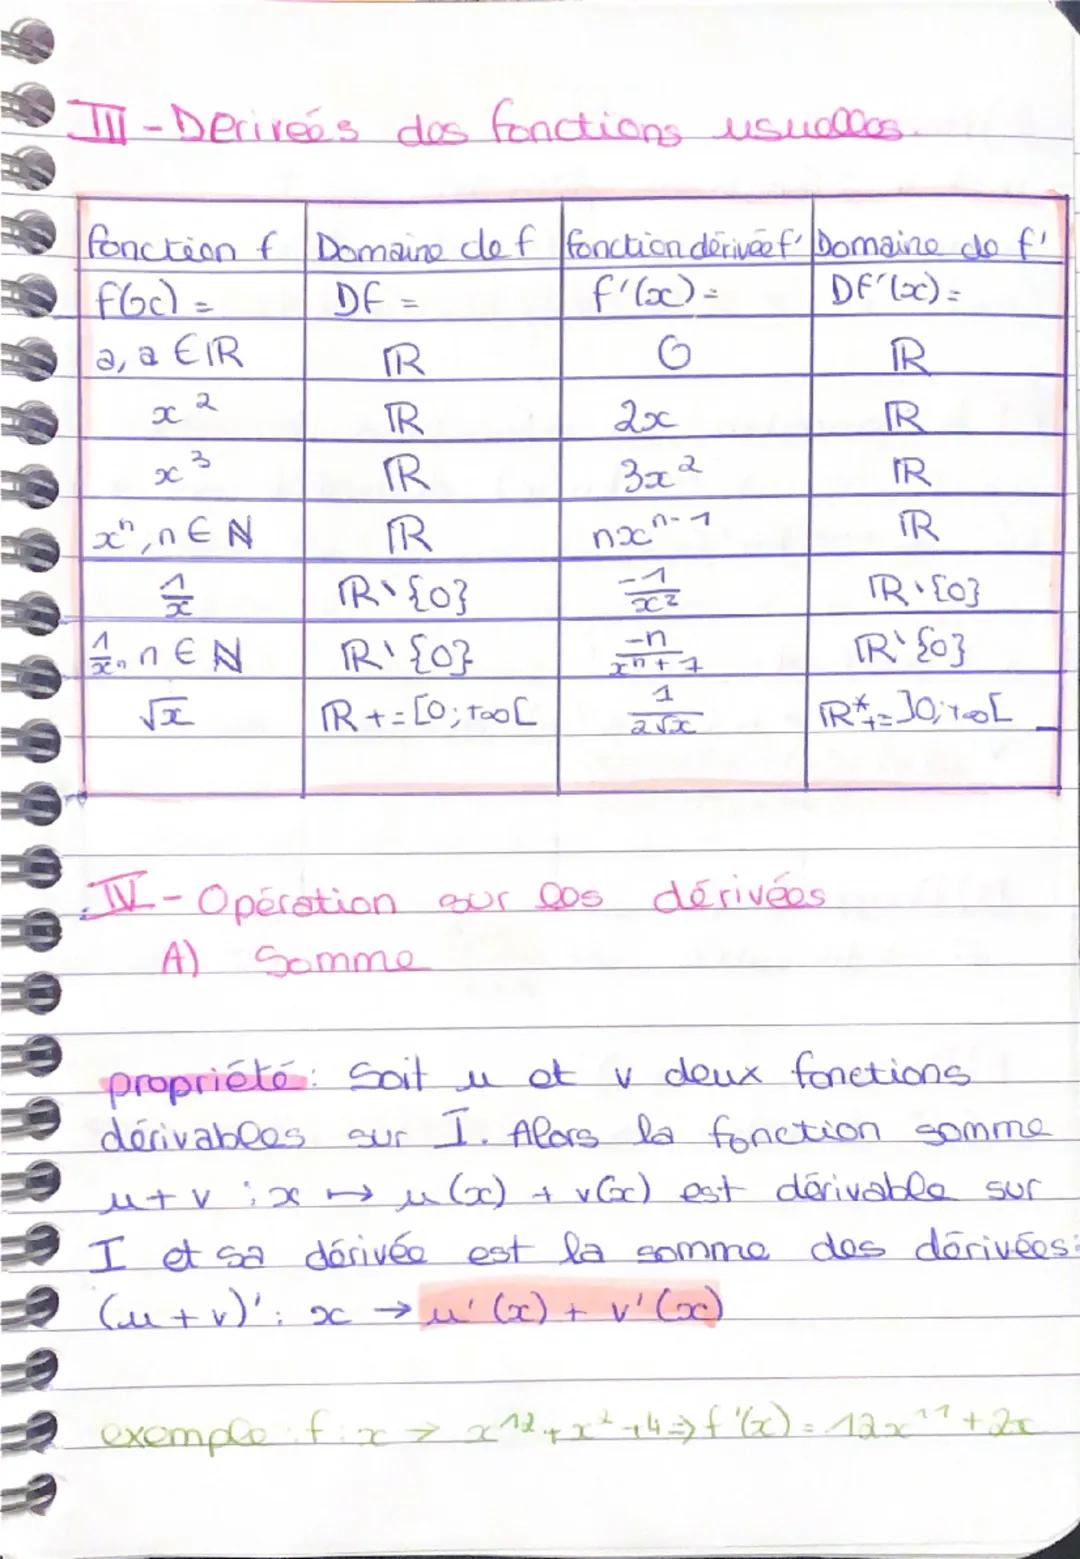 III - Derivées des fonctions usuelles.
fonction f | Domaine de f | fonction dérivée f' | Domaine de f'
f(x) = | Df = | f'(x) = | Df'(x) =
a, a ∈ ℝ | ℝ | 0 | ℝ
x² | ℝ | 2x | ℝ
x³ | ℝ | 3x² | ℝ
xⁿ, n ∈ ℕ | ℝ | nxⁿ⁻¹ | ℝ
1/x | ℝ\{0} | -1/x² | ℝ\{0}
1/xⁿ, n ∈ ℕ | ℝ\{0} | -n/xⁿ⁺¹ | ℝ\{0}
√x | ℝ+ = [0; +∞[ | 1/2√x | ℝ*+ = ]0; +∞[
IV - Opération sur les dérivées
A) Somme
propriété : Soit u et v deux fonctions
dérivables sur I. Alors la fonction somme
u + v : x ↦ u(x) + v(x) est dérivable sur
I et sa dérivée est la somme des dérivées :
(u + v)' : x → u'(x) + v'(x)
exemple : f : x → x¹² + x² + 4 ⇒ f'(x) = 12x¹¹ + 2x